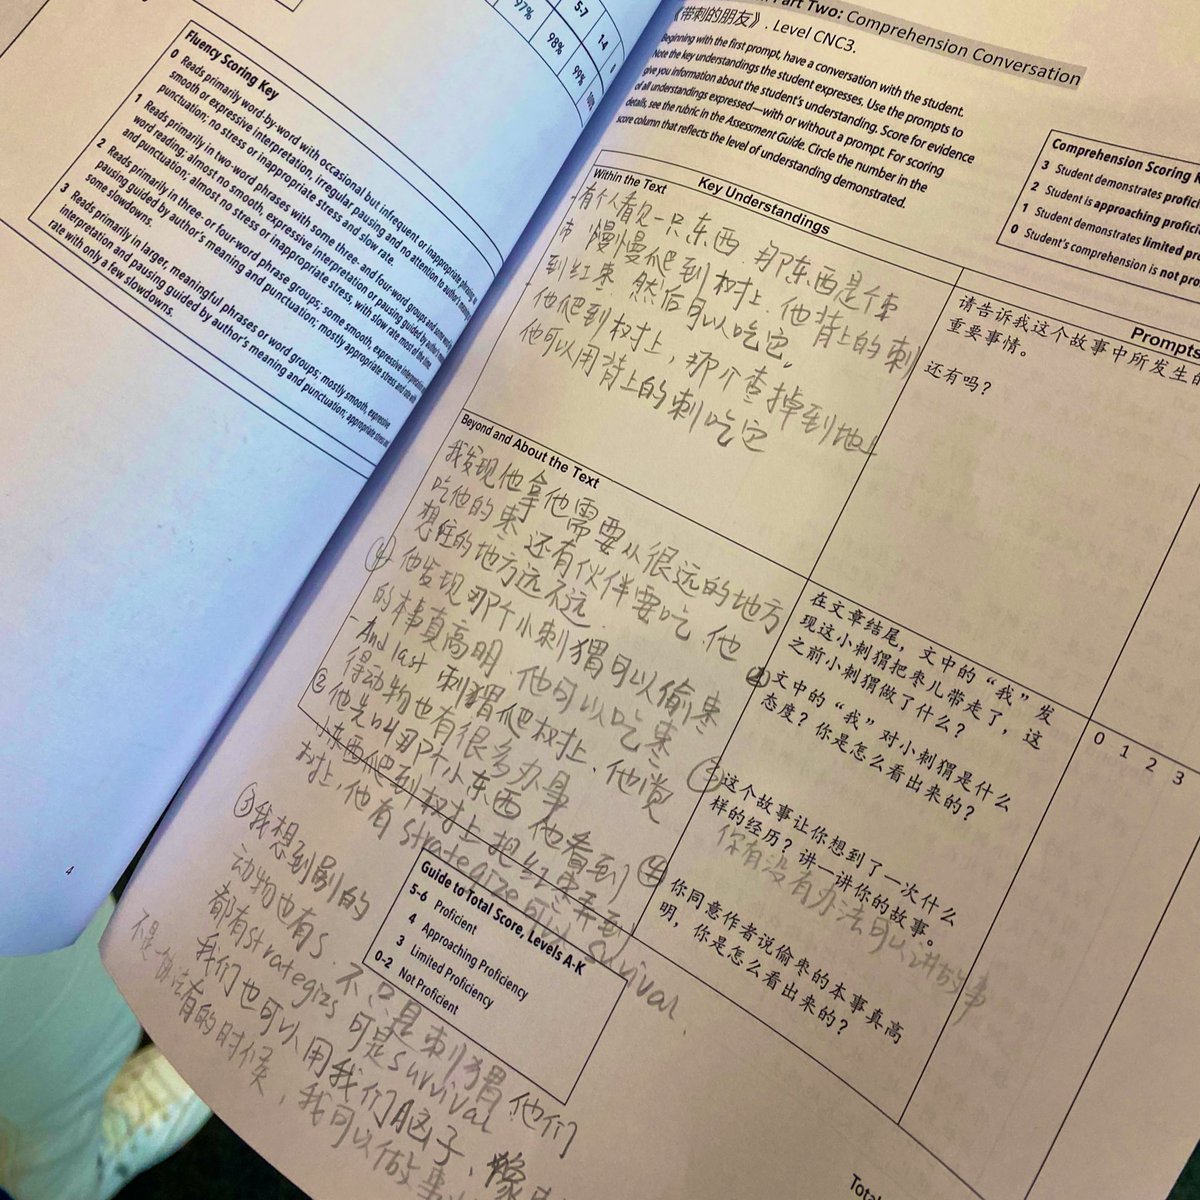 57
5-7
1-4
97%
98%
99%
Fluency Scoring Key
0 Reads primarily word-by-word with occasional but infrequent or inappropriate phrasing; no
smooth or expressive interpretation, irregular pausing and no attention to author's meaning or
punctuation; no stress or inappropriate stress and slow rate
1 Reads primarily in two-word phrases with some three- and four-word groups and some word-by-
word reading; almost no smooth, expressive interpretation or pausing guided by author's meaning
and punctuation; almost no stress or inappropriate stress, with slow rate most of the time
2 Reads primarily in three- or four-word phrase groups; some smooth, expressive interpretation and
pausing guided by author's meaning and punctuation; mostly appropriate stress and rate with
some slowdowns.
3 Reads primarily in larger, meaningful phrases or word groups; mostly smooth, expressive
interpretation and pausing guided by author's meaning and punctuation; appropriate stress and
rate with only a few slowdowns.
4
Part Two: Comprehension Conversation
《带刺的朋友》. Level CNC3.
Beginning with the first prompt, have a conversation with the student.
Note the key understandings the student expresses. Use the prompts to
give you information about the student's understanding. Score for evidence
of all understandings expressed—with or without a prompt. For scoring
details, see the rubric in the Assessment Guide. Circle the number in the
score column that reflects the level of understanding demonstrated.
Comprehension Scoring
3 Student demonstrates
2 Student is approaching
1 Student demonstrates limited
0 Student's comprehension is not
Key Understandings
Prompts
Within the Text
有个人看见一只东西.那东西是个
慢慢爬到树上.他背上的刺
到红枣.然后可以吃它。
他爬到树上,那个枣掉到地上
他可以用背上的刺吃它
请告诉我这个故事中所发生的
重要事情。
还有吗?
Beyond and About the Text
我发现他拿他需要从很远的地方
吃他的枣 还有伙伴要吃.他
想住的地方远不远.
④ 他发现那个小刺猬可以偷枣
的本事真高明.他可以吃枣
- And last 刺猬爬树上.他觉
得动物也有很多办事
② 他先叫那个小东西 他看到
小东西爬到树上 把红枣弄到
树上,他有 strategize 可以 survival.
③ 我想到别的
动物也有s.不只是刺猬.他们
都有strategizs 可是survival
我们也可以用我们脑子.像
有的时候,我可以做
在文章结尾,文中的“我”发
现这小刺猬把枣儿带走了,这
之前小刺猬做了什么?
② 文中的“我”对小刺猬是什么
态度?你是怎么看出来的?
③ 这个故事让你想到了一次什么
样的经历?讲一讲你的故事。
你有没有办法可以讲故事
④ 你同意作者说偷枣的本事真高
明,你是怎么看出来的?
0 1 2 3
Guide to Total Score, Levels A-K
5-6 Proficient
4 Approaching Proficiency
3 Limited Proficiency
0-2 Not Proficient